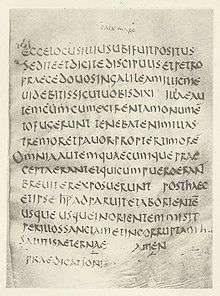 ECCELOCUSILLIUSUBIFUITPOSITUS
SEDITEETDICITEDISCIPULISETPETRO
PRAECEDOUOSINGALILEAMILLICME
UIDEBITISSICUTUOBISDIXI ILLAEAU
TEMCUMCUMEXIRENTAMONUME
TOFUGERUNTTENEBATENIMILLAS
TREMORETPAUORPROPTERTIMORE
OMNIAAUTEMQUAECUMQUEPRAE
CEPTAERANTETQUICUMPUEROERAN
BREUITEREXPOSUERUNT POSTHAEC
ETIPSEHISADPARUITETABORIENTE
USQUEUSQUEINORIENTEMMISIT
PERILLOSSANCTAMETINCORRUPTAMH
SALUTISAETERNAE AMEN
PRAEDICATIONIS